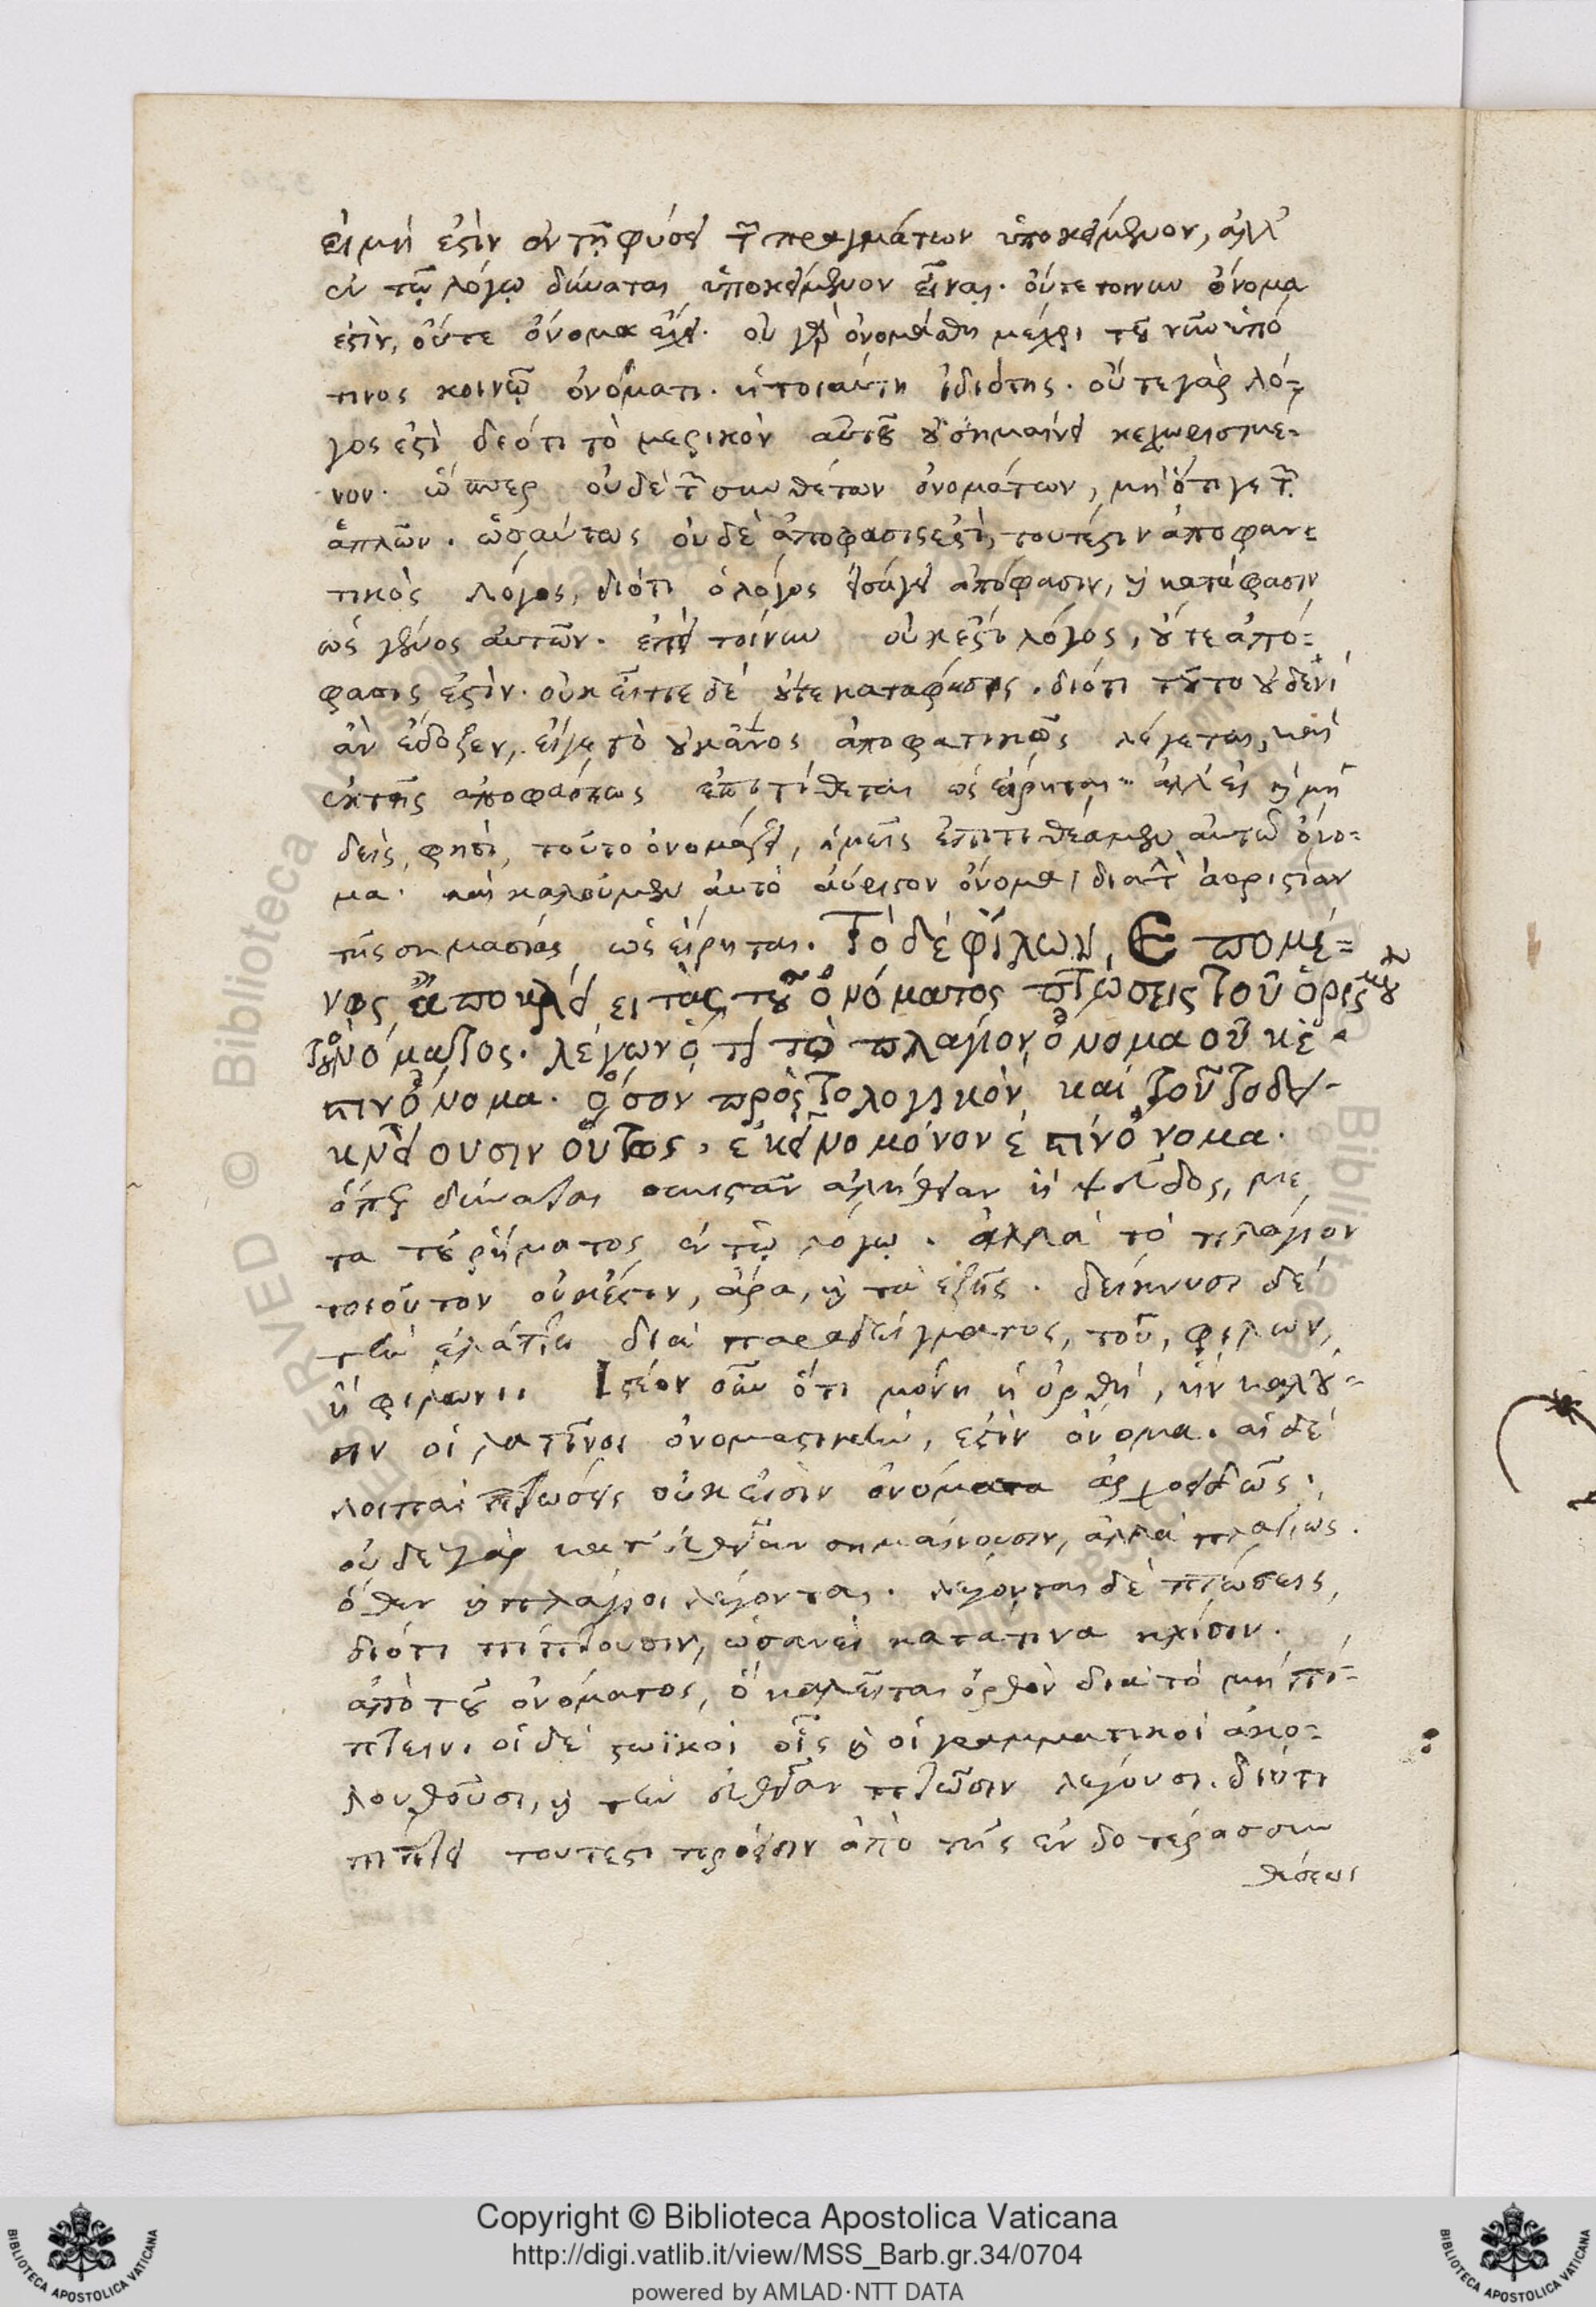 εἰ μή ἐστιν ἐν τῇ φύσει τῶν πραγμάτων ὑποκείμενον, ἀλλ'
ἐν τῷ λόγῳ δύναται ὑποκείμενον εἶναι. οὔτε τοίνυν ὄνομά
ἐστιν, οὔτε ὄνομα ἔχει. οὐ γὰρ ὀνομάσθη μέχρι τοῦ νῦν ὑπό
τινος κοινῷ ὀνόματι. ἡ τοιαύτη ἰδιότης. οὔτε γὰρ λό-
γος ἐστὶ διότι τὸ μερικὸν αὐτοῦ οὐ σημαίνει κεχωρισμέ-
νον. ὥσπερ οὐδὲ τῶν συνθέτων ὀνομάτων, μὴ ὅτι γε τῶν
ἁπλῶν. ὡσαύτως οὐδὲ ἀπόφασις ἐστὶ, τουτέστιν ἀποφαν-
τικὸς λόγος, διότι ὁ λόγος εἰσάγει ἀπόφασιν, καὶ κατάφασιν
ὡς γένος αὐτῶν. ἐπεὶ τοίνυν οὐκ ἐστὶ λόγος, οὔτε ἀπό-
φασις ἐστὶν. οὐκ εἶπε δὲ οὔτε κατάφασις. διότι τοῦτο οὐδενὶ
ἂν ἔδοξεν, εἴγε τὸ οὐκ ἄνθρωπος ἀποφατικῶς λέγεται, καὶ
ἐκ τῆς ἀποφάσεως ἐπιτίθεται ὡς εἴρηται. ἀλλ' εἰ καὶ μη
δεὶς, φησὶ, τοῦτο ὀνομάζει, ἡμεῖς ἐπιτιθέαμεν αὐτῷ ὄνο-
μα. καὶ καλοῦμεν αὐτὸ ἀόριστον ὄνομα, διὰ τὴν ἀοριστίαν
τῆς σημασίας ὡς εἴρηται. Τὸ δὲ φίλων, Ἑπομέ-
νως ἀποκλείει τὰς τοῦ ὀνόματος πτώσεις τοῦ ὁρισμοῦ
τοῦ ὀνόματος. λέγων ὅτι τὸ πλάγιον ὄνομα οὐκ ἔ-
στιν ὄνομα. ὅσον πρὸς τὸ λογικὸν καὶ τοῦτο δεί-
κνύουσιν οὕτως. ἐκεῖνο μόνον ἐστὶν ὄνομα.
ὅπερ δύναται συνιστᾶν ἀλήθειαν ἢ ψεῦδος, με
τὰ τοῦ ῥήματος ἐν τῷ λόγῳ. ἀλλὰ τὸ πλάγιον
τοιοῦτον οὐκ ἔστιν, ἄρα, καὶ τὰ ἑξῆς. δείκνυσι δὲ
τὴν ἐλάττω διὰ παραδείγματος, τοῦ, φίλων,
ἢ φίλωνι. Ἰστέον οὖν ὅτι μόνη ἡ ὀρθὴ, ἣν καλοῦ-
σιν οἱ λατῖνοι ὀνομαστικὴν, ἐστὶν ὄνομα. αἱ δὲ
λοιπαὶ πτώσεις οὐκ εἰσὶν ὀνόματα ἀρχοειδῶς.
οὐδὲ γὰρ κατ' εὐθεῖαν σημαίνουσιν, ἀλλὰ πλαγίως.
ὅθεν καὶ πλάγιοι λέγονται. λέγονται δὲ πτώσεις,
διότι πίπτουσιν, ὡσανεὶ κατά τινα κλίσιν.
ἀπὸ τοῦ ὀνόματος, ὃ καλεῖται ὀρθὸν διὰ τὸ μὴ πί-
πτειν. οἱ δὲ στωϊκοὶ οἷς καὶ οἱ γραμματικοὶ ἀκο-
λουθοῦσι, καὶ τὴν εὐθεῖαν πτῶσιν λέγουσι. διότι
πίπτει τουτέστι πρόεισιν ἀπὸ τῆς ἐνδοτέρας συν
θέσεως
Copyright © Biblioteca Apostolica Vaticana
http://digi.vatlib.it/view/MSS_Barb.gr.34/0704
powered by AMLAD·NTT DATA